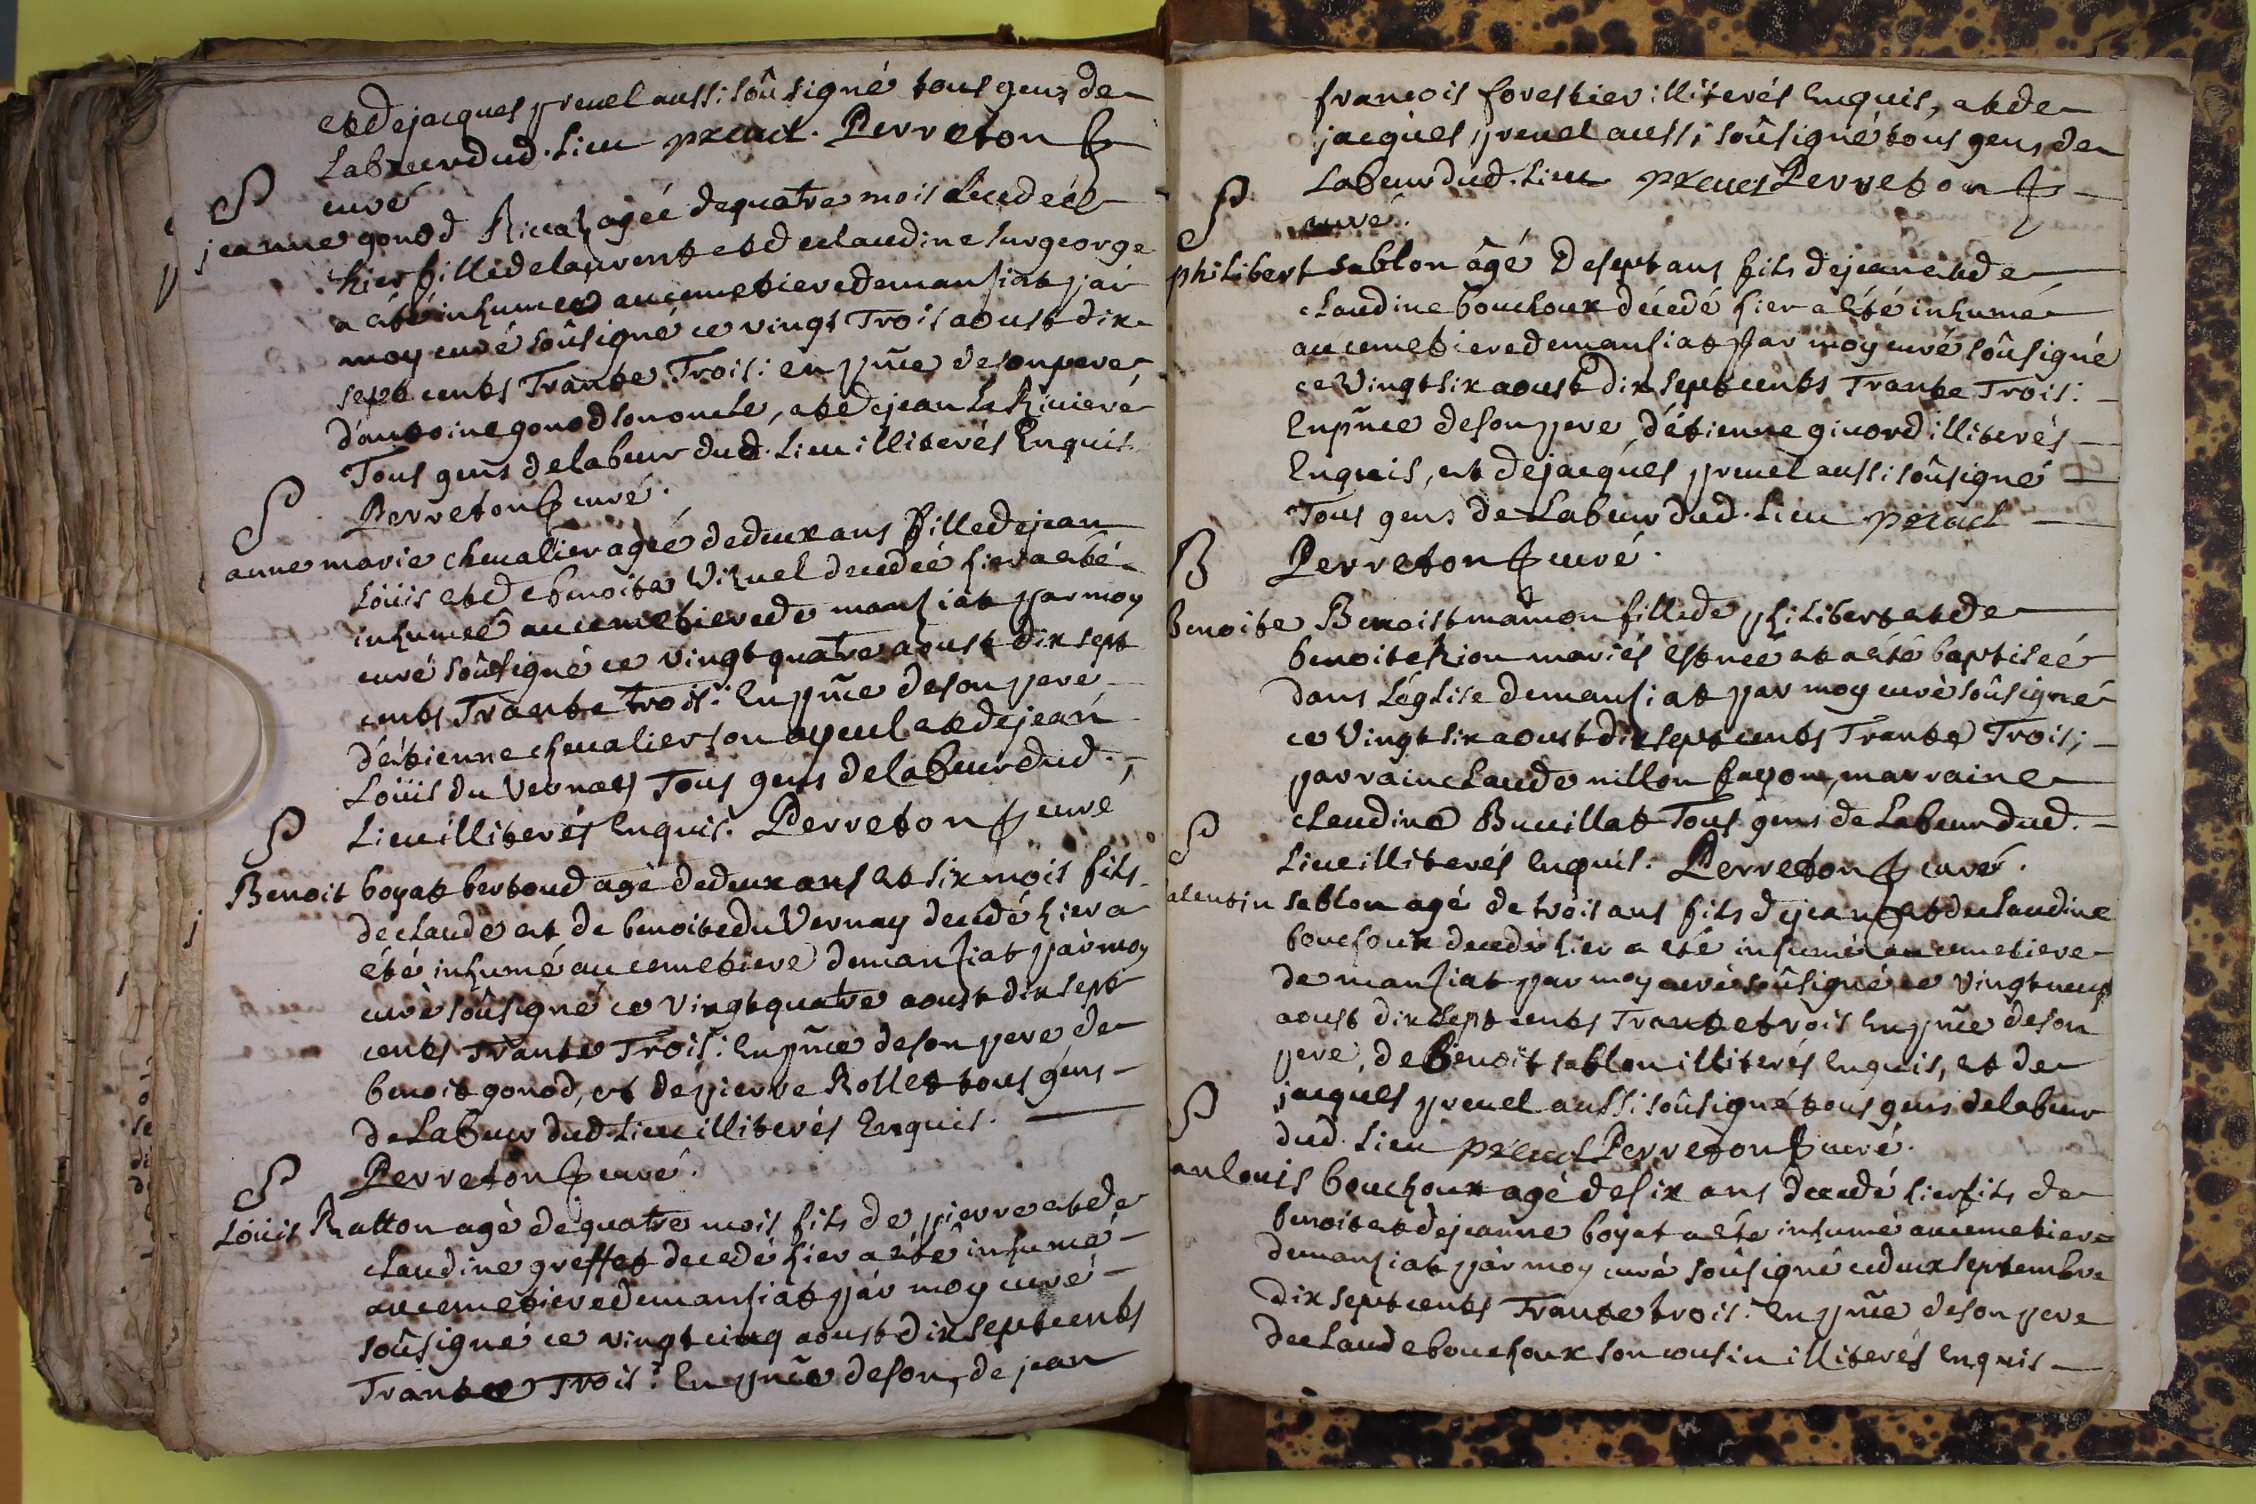 et de jacques preuel aussi soûsigné tous gens de
Labeur dud. Lieu preuel. Perreton
curé
S
jeanne gonod Riccaz ageé de quatre mois decedeé
hier fille de laurent et de claudine surgeorge
a été inhumeé au cemetiere de mansiat par
moy curé soûsigné ce vingt Trois aoust dix
sept cents Trante Trois: en pñce de son pere
d'antoine gonod son oncle, et de jean La Riviere
Tous gens de labeur dud. Lieu illiterés Enquis.
Perreton curé.
S
anne marie chevalier ageé de deux ans fille de jean
Loüis et de benoite Viruel decedeé hier a été
inhumeé au cemetiere de mansiat par moy
curé soûsigné ce vingt quatre aoust dix sept
cents Trante trois: En pñce de son pere
d'étienne chevalier son ayeul et de jean
Loüis du Vernay Tous gens de labeur dud.
Lieu illiterés Enquis. Perreton curé
S
Benoit boyat bertoud agé de deux ans et six mois fils
de claude et de benoite du Vernay decedé hier a
été inhumé au cemetiere de mansiat par moy
curé soûsigné ce Vingt quatre aoust dix sept
cents Trante Trois: En pñce de son pere, de
benoit gonod, et de pierre Rollet tous gens
de Labeur dud. Lieu illiterés Enquis.
Perreton curé.
S
Loüis Ratton agé de quatre mois fils de pierre et de
claudine greffet decedé hier a été inhumé
au cemetiere de mansiat par moy curé
soûsigné ce vingt cinq aoust dix sept cents
Trante Trois: En pñce de son, de jean
francois forestier illiterés Enquis, et de
jacques preuel aussi soûsigné tous gens de
Labeur dud. Lieu preuel Perreton
curé.
S
philibert sablon âgé de sept ans fils de jean et de
claudine bouchoux décedé hier a été inhumé
au cemetiere de mansiat par moy curé soûsigné
ce Vingt six aoust dix sept cents Trante Trois:
En pñce de son pere, d'étienne givord illiterés
Enquis, et de jacques preuel aussi soûsigné
Tous gens de Labeur dud. Lieu preuel
Perreton curé.
B
Benoite Benoist mamon fille de philibert et de
benoite hion mariés est neé et a été baptiseé
dans L'église de mansiat par moy curé soûsigné
ce Vingt six aoust dix sept cents Trante Trois;
parrain claude nillon fayon, marraine
claudine Buvillat Tous gens de Labeur dud.
Lieu illiterés Enquis. Perreton curé.
S
alentin sablon agé de trois ans fils de jean et de claudine
bouchoux decedé hier a été inhumé au cemetiere
de mansiat par moy curé soûsigné ce Vingt neuf
aoust dix sept cents Trante trois En pñce de son
pere, de Benoit sablon illiterés Enquis, et de
jacques preuel aussi soûsigné tous gens de labeur
dud. Lieu preuel Perreton curé.
S
an Louis bouchoux agé de six ans decedé hier fils de
benoit et de jeanne boyat a été inhumé au cemetiere
de mansiat par moy curé soûsigné ce deux septembre
dix sept cents Trante trois: En pñce de son pere
de claude bouchoux son cousin illiterés Enquis